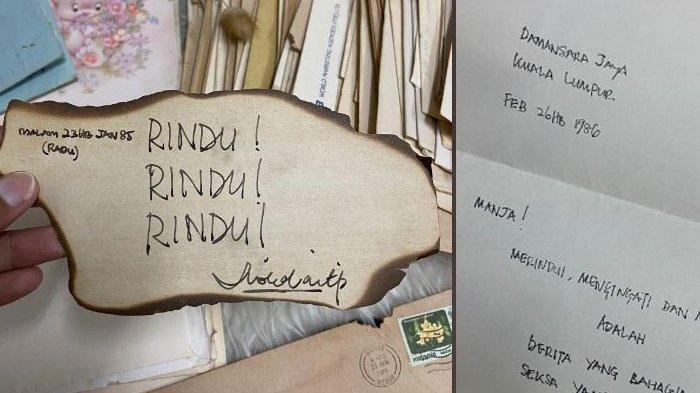 MALAM 23HB JAN 85
(RABU)
RINDU!
RINDU!
RINDU!
malaysia
DAMANSARA JAYA
KUALA LUMPUR
FEB 26HB 1986
MANJA!
MERINDUI, MENGINGATI DAN M
ADALAH
BERITA YANG BAHAGI
SEKSA YAN